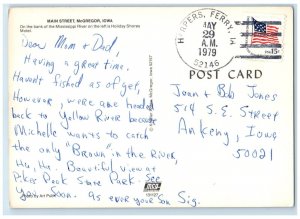 MAIN STREET, McGREGOR, IOWA.
On the bank of the Mississippi River on the left is Holiday Shores
Motel.
HARPERS FERRY, IA
MAY
29
A.M.
1979
52146
USA 15c
POST CARD
Dear Mom + Dad,
Having a great time.
Havent fished as of yet,
However, were are headed
back to Yellow River because
Michelle wants to catch
the only "Brown" in the River,
Ha, Ha. Beautiful view at
Pikes Peak State Park. See
You Soon. as ever your Son, Sig.
Joan & Bob Jones
514 S.E. Street
Ankeny, Iowa
50021